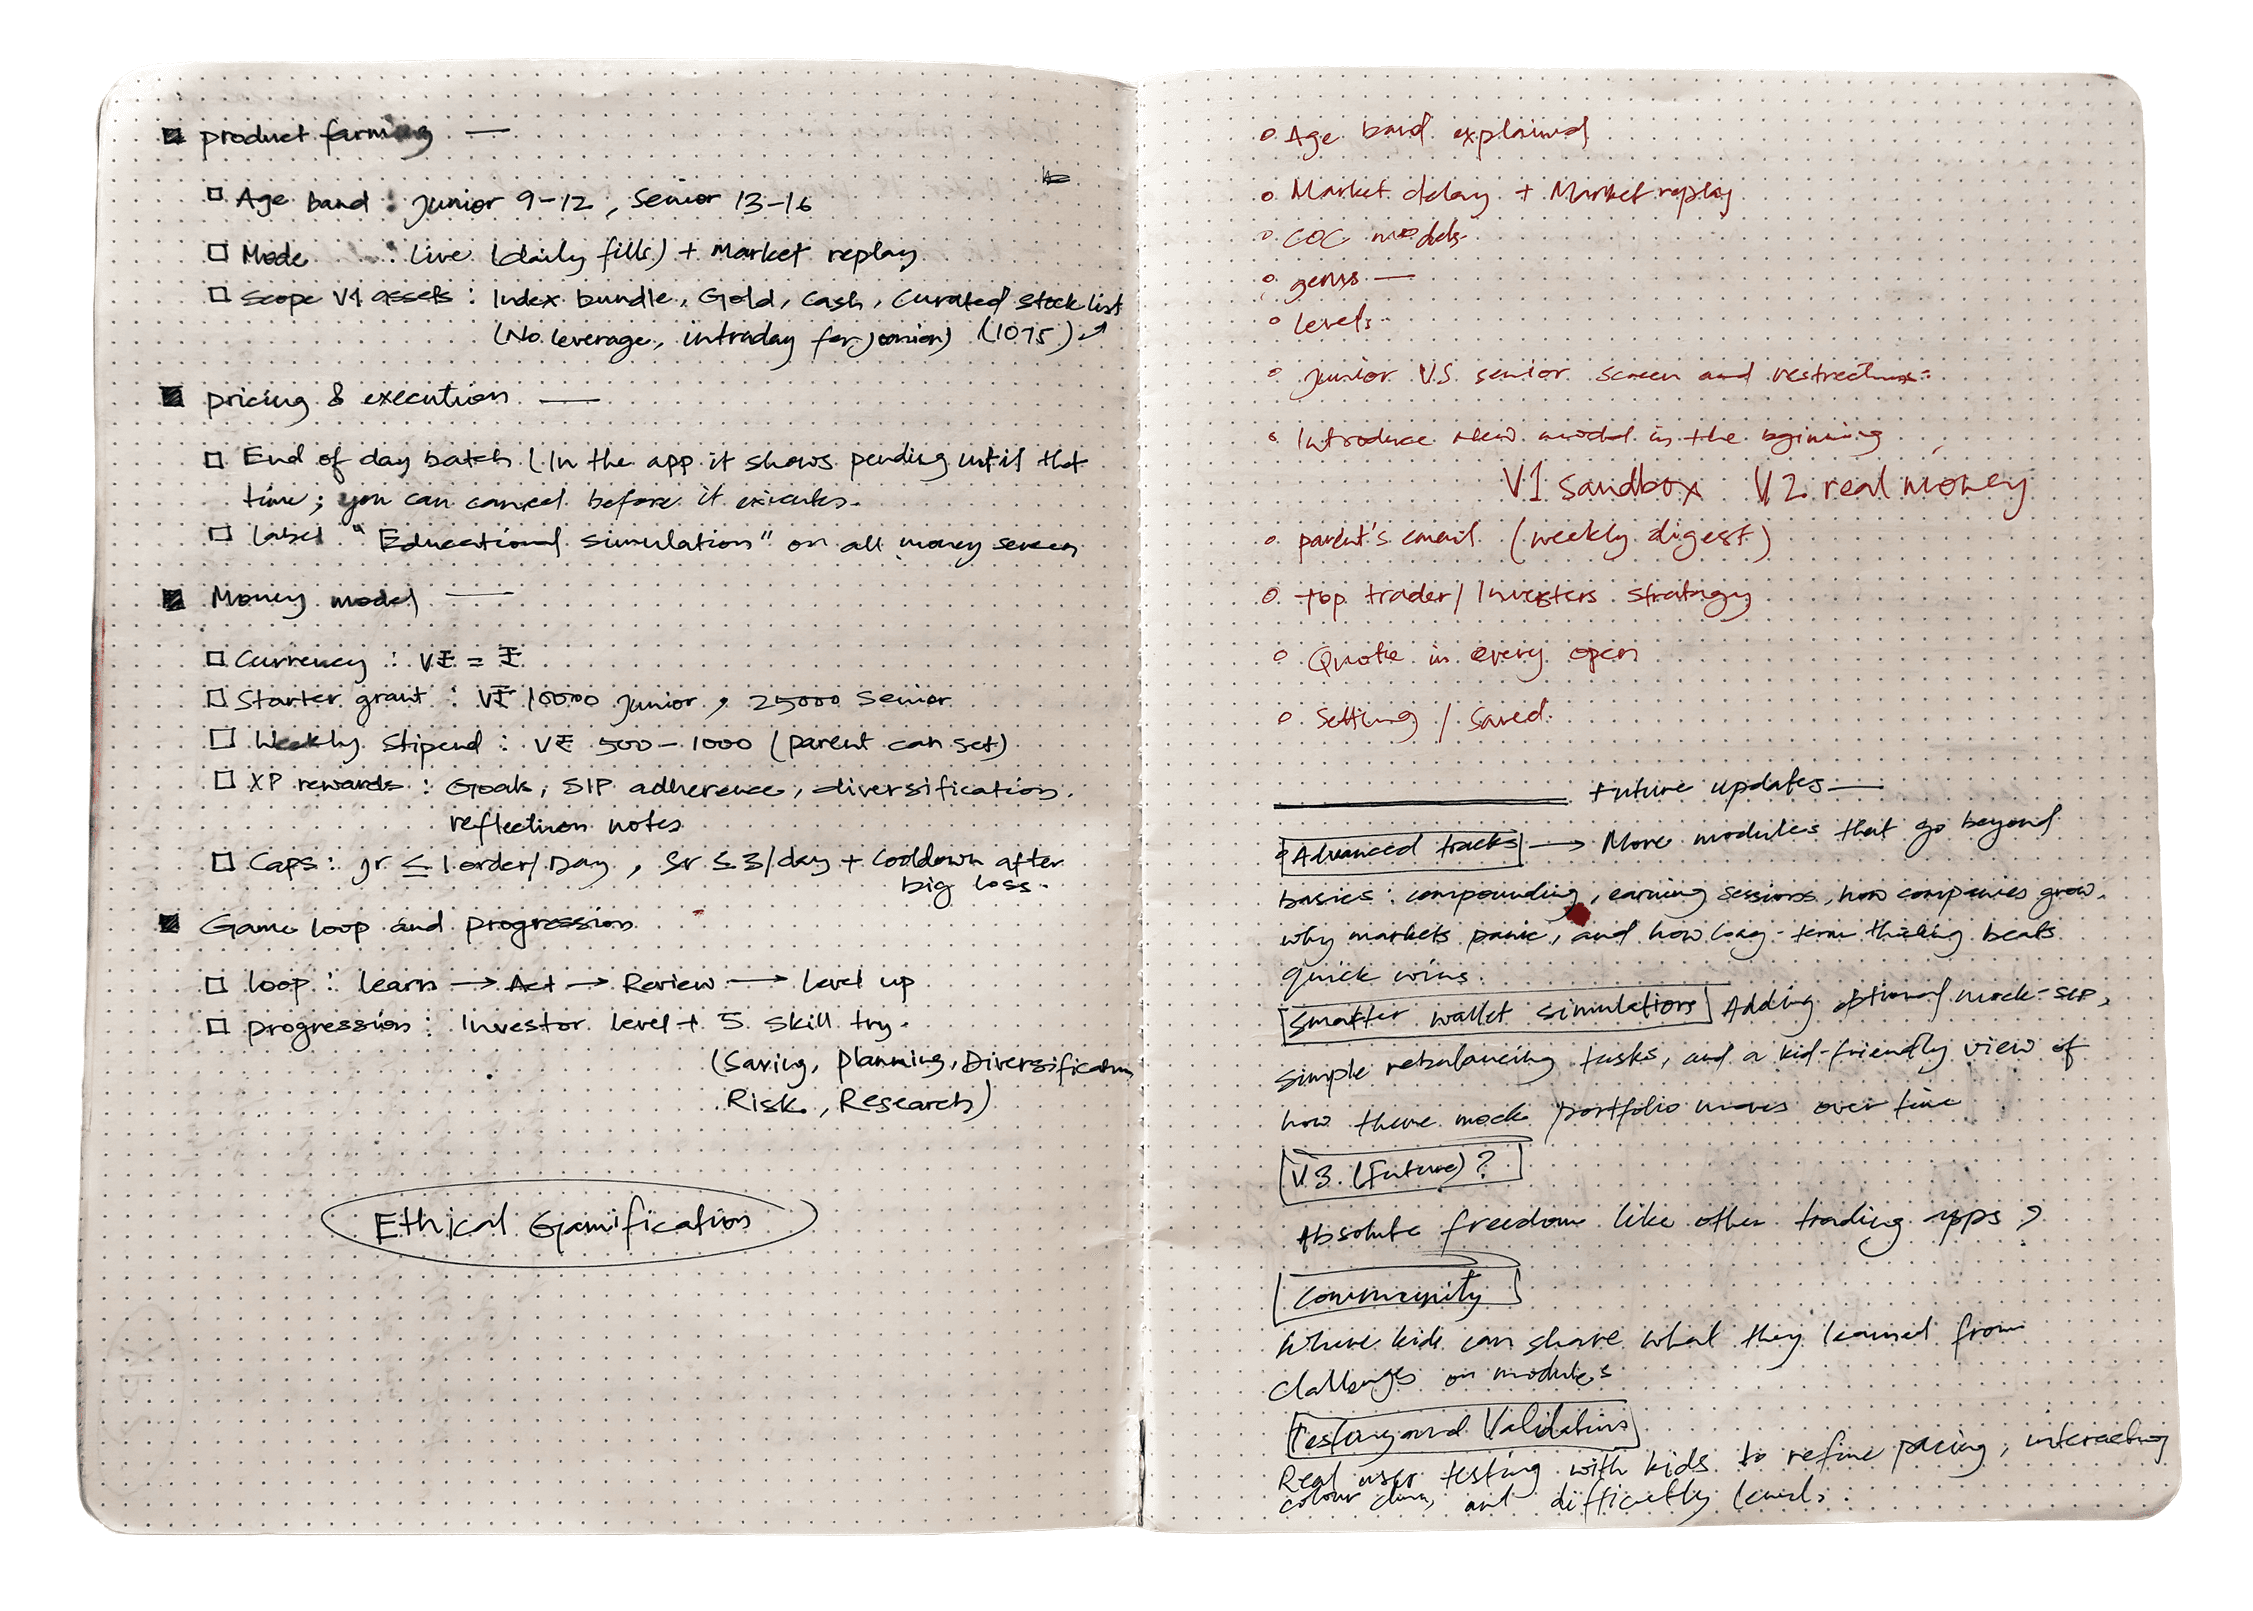 product farming —
Age band : Junior 9-12, Senior 13-16
Mode : Live (daily fills) + Market replay
Scope V1 assets : Index bundle, Gold, Cash, Curated stock list
(No leverage, intraday for junior) (10 15)
pricing & execution —
End of day batch (In the app it shows pending until that
time; you can cancel before it executes.
Label "Educational simulation" on all money screen
Money model —
Currency : V₹ = ₹
Starter grant : V₹ 10000 Junior, 25000 Senior
Weekly Stipend : V₹ 500-1000 (parent can set)
XP rewards : Goals, SIP adherence, diversification,
reflection notes
Caps : Jr ≤ 1 order/Day, Sr ≤ 3/day + Cooldown after
big loss.
Game loop and progression
loop : learn → Act → Review → Level up
progression : Investor level + 5 skill try.
(Saving, planning, Diversification
Risk, Research)
Ethical Gamification
Age band explained
Market delay + Market replay
COC models
gems —
levels
Junior VS senior screen and restrections
Introduce new model in the bginning
V1 sandbox V2 real money
parent's email (weekly digest)
top trader/Investers stratagy
Quote in every open
Setting / Saved
Future updates —
Advanced tracks → More modules that go beyond
basics : compounding, earning sessions, how companies grow,
why markets panic, and how long-term thinking beats
quick wins.
Smarter wallet simulations Adding optional mock-SIP,
simple rebalancing tasks, and a kid-friendly view of
how there mock portfolio moves over time
V3 (Future) ?
Absolute freedom like other trading apps ?
Community
Where kids can share what they learned from
challenges or modules
Testing and Validations
Real user testing with kids to refine pacing, interacting
colour and difficulty levels.